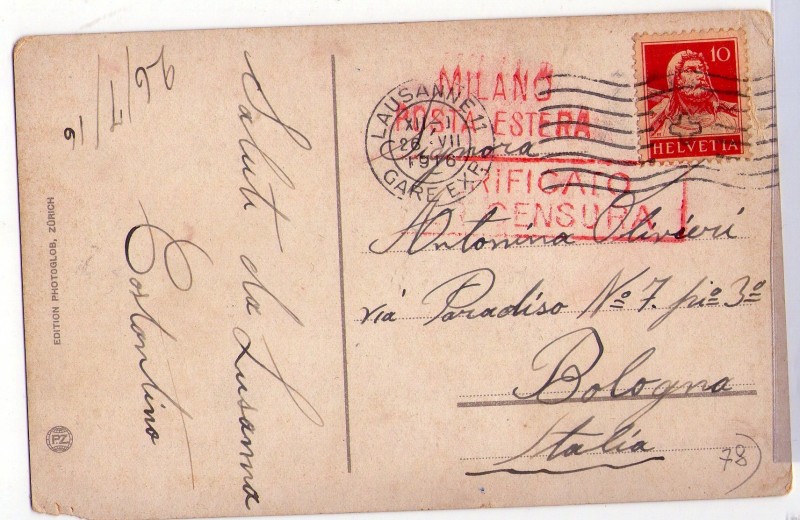 26/7
16
Saluti da Lusanna
Costantino
EDITION PHOTOGLOB, ZÜRICH
PZ
MILANO
POSTA ESTERA
VERIFICATO
CENSURA
LAUSANNE 1
XII
26. VII
1916
GARE EXP.
10
HELVETIA
Signora
Antonina Olivieri
via Paradiso No 7. pio 3o
Bologna
Italia
78